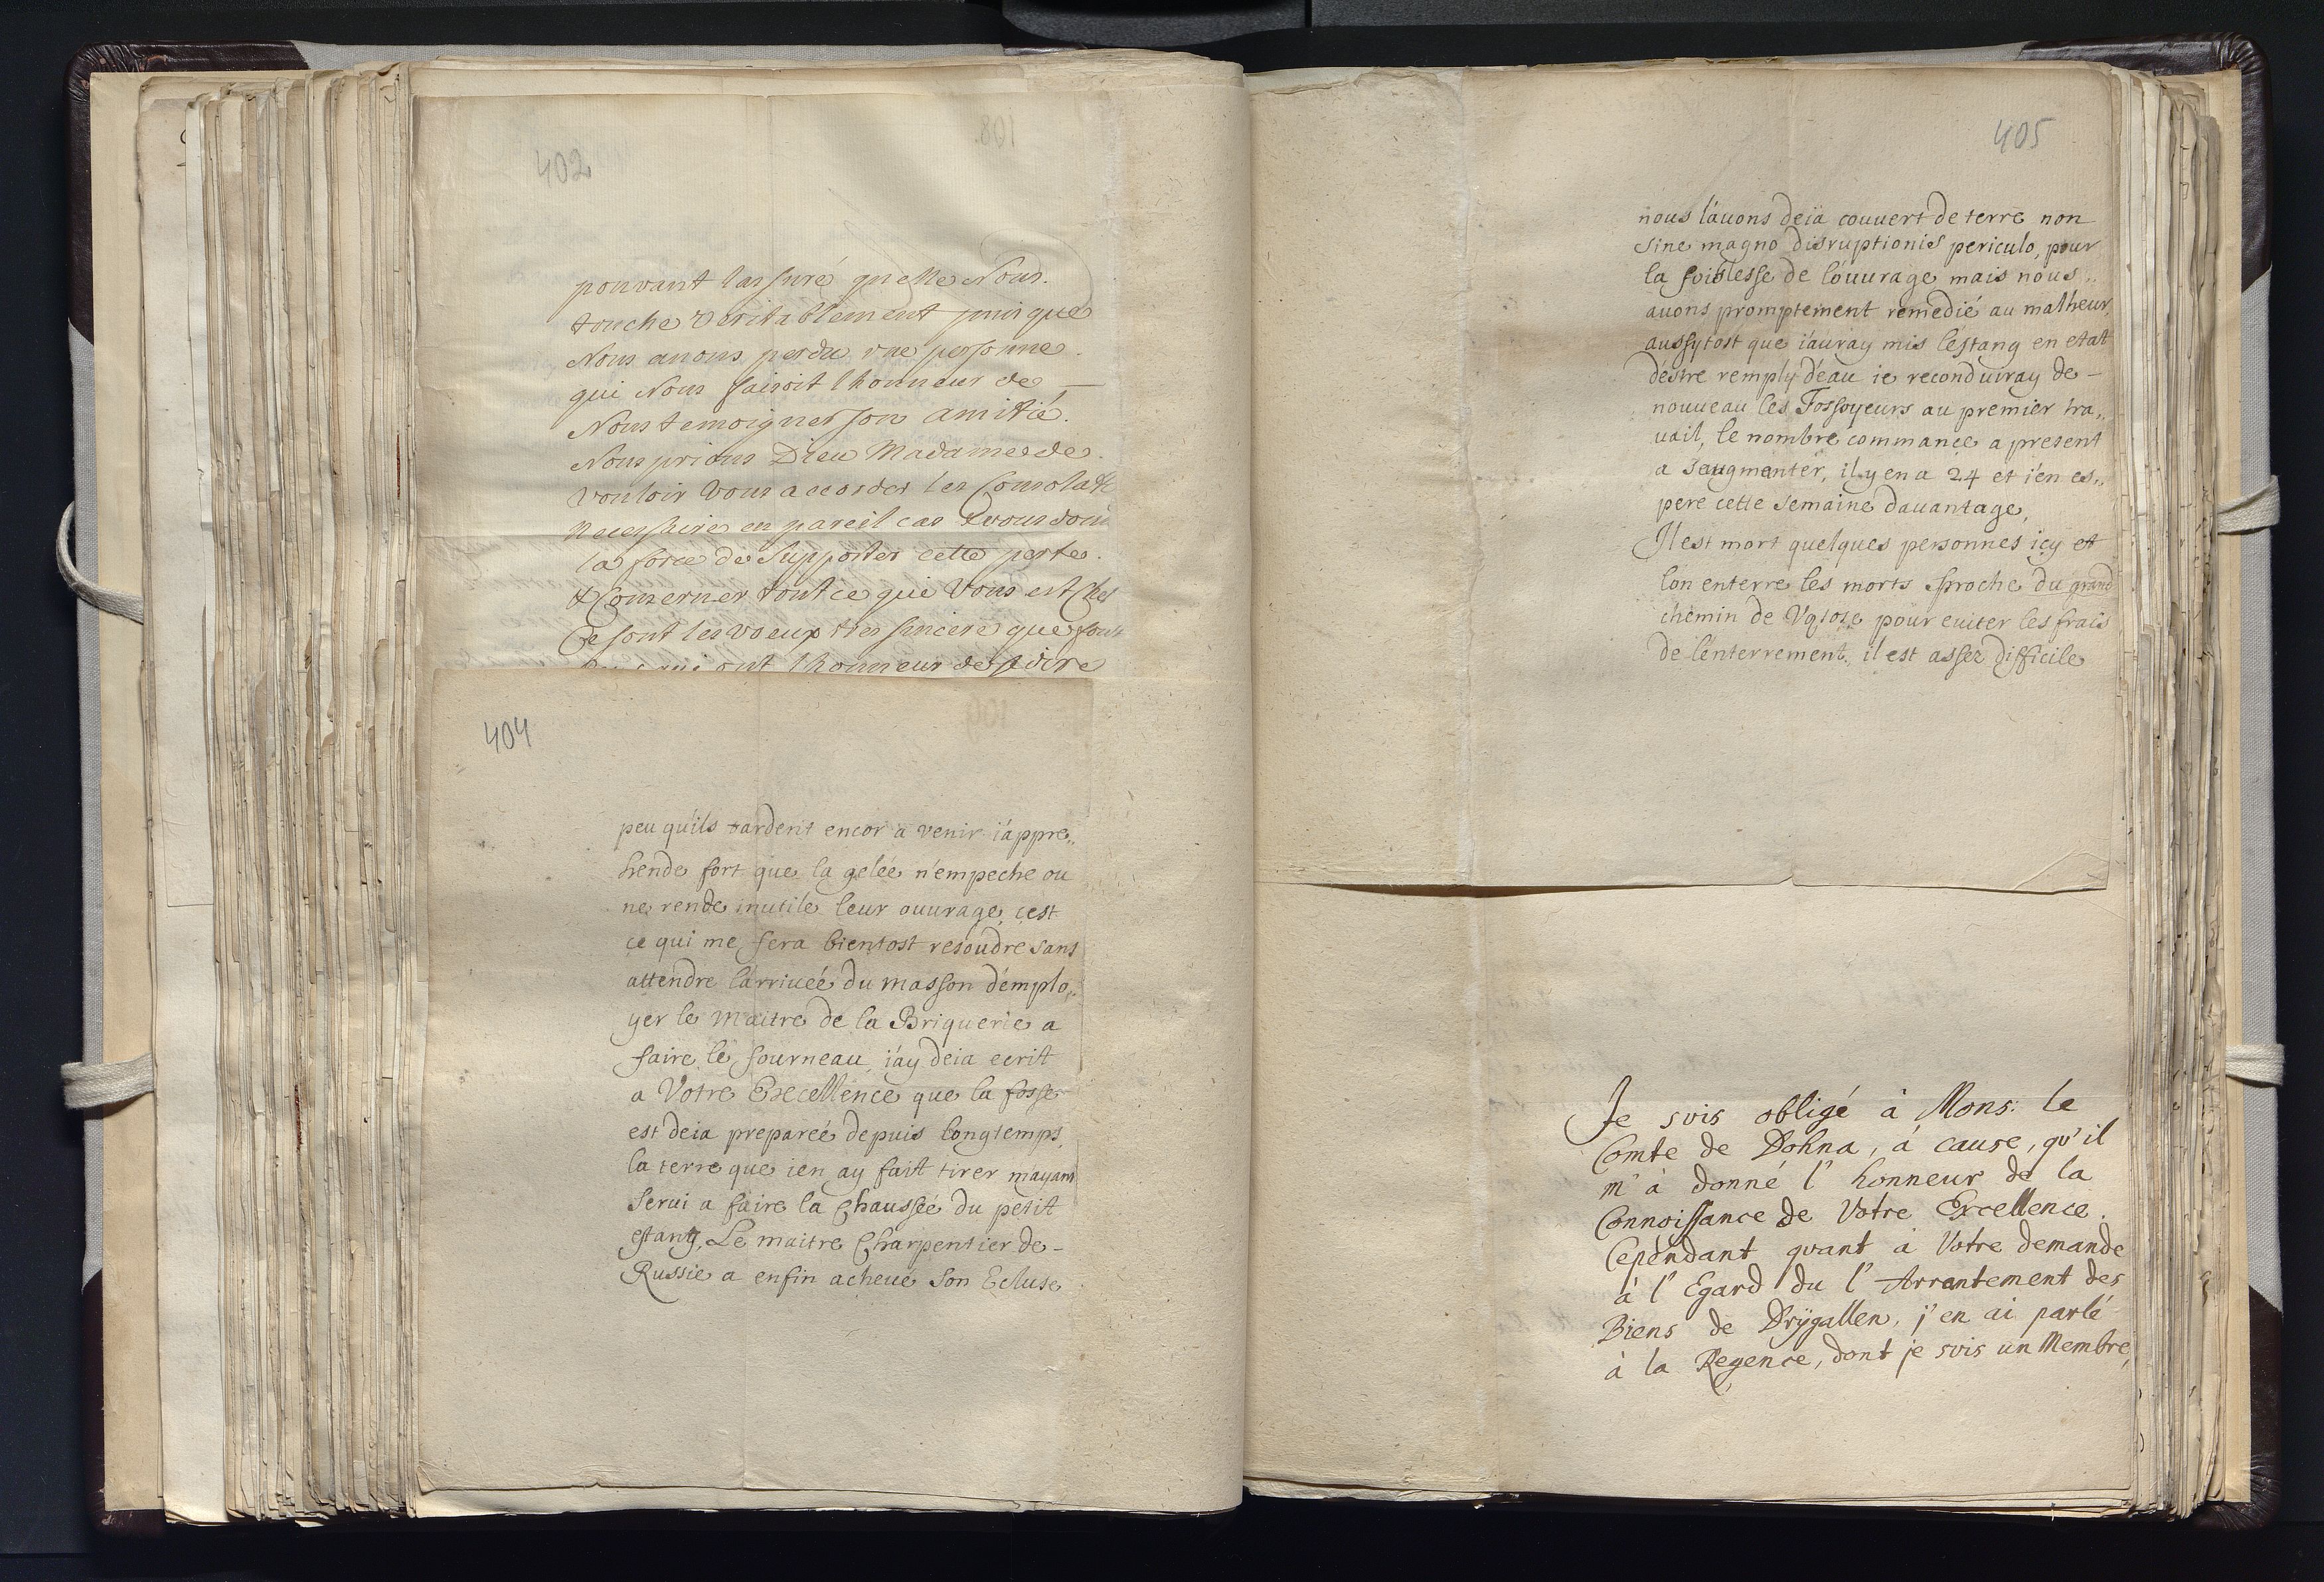 402
pouvant lassuré quelle Nous.
touche veritablement puis que
Nous auons perdu vne personne.
qui Nous faisoit lhonneur de
Nous temoigner son amitié.
Nous prions Dieu Madame de.
vouloir vous accorder les Consola
Necessaire en pareil cas & vous don
la force de supporter cette perte.
& Conserver tout ce qui vous est Cher
Ce sont les voeux tres sincere que font
qui ont lhonneur de se dire
404
peu quils tardent encor a venir iáppre„
hende fort que la gelée némpeche ou
ne rende inutile leur ouurage, cest
ce qui me fera bientost resoudre sans
attendre lárriueé du masson démplo„
yer le maitre de la Briquerie a
faire le fourneau, iáy deia ecrit
a Votre Excellence que la fosse
est deia prepareé depuis longtemps,
la terre que ien ay fait tirer máyant
serui a faire la Chausseé du petit
estang, Le maitre Charpentier de-
Russie a enfin acheué son Ecluse
405
nous láuons deia couuert de terre non
sine magno disruptionis periculo, pour
la foiblesse de lóuurage mais nous„
auons promptement remedié au malheur,
aussytost que iáuray mis léstang en etat
déstre remply déau ie reconduiray de-
nouueau les Fossoyeurs au premier tra„
uail, le nombre commance a present
a sáugmenter, il y en a 24 et ién es„
pere cette semaine dauantage,
Il est mort quelques personnes icy et
lón enterre les morts proche du grand
chemin de pour euiter les frais
de lénterrement, il est assez difficile
Je suis obligé à Mons: le
Comte de Dohna, á cause, qu'il
m'à donné l'honneur de la
Connoissance de Votre Excellence.
Cependant quant à Votre demande
à l'Egard du l'Arrentement des
Biens de Drÿgallen, j'en ai parlé
à la Regence, dont je suis un Membre,